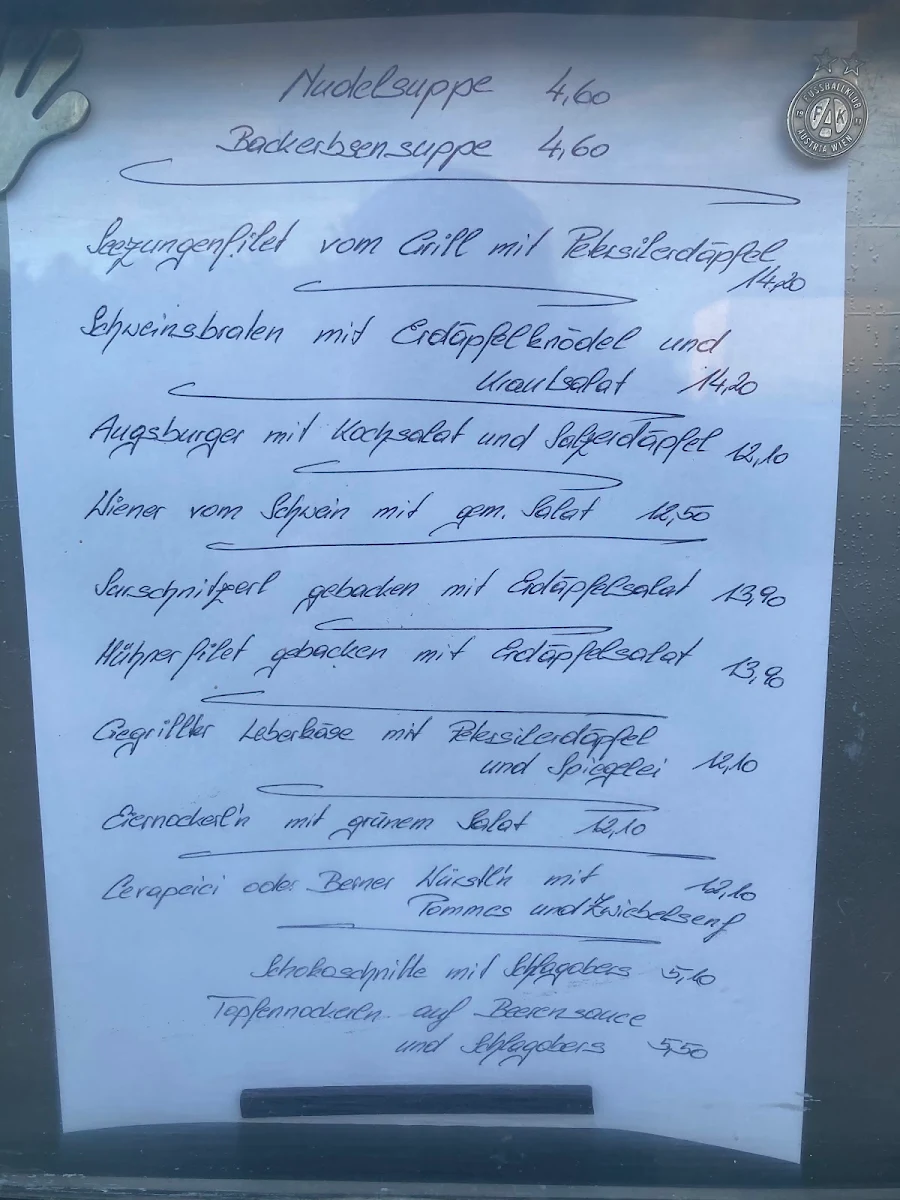 Nudelsuppe 4,60
Backerbsensuppe 4,60
Seezungenfilet vom Grill mit Petersilerdäpfel
14,20
Schweinsbraten mit Erdäpfelknödel und
Krautsalat 14,20
Augsburger mit Kochsalat und Salzerdäpfel 12,10
Wiener vom Schwein mit gem. Salat 12,50
Surschnitzerl gebacken mit Erdäpfelsalat 13,90
Hühnerfilet gebacken mit Erdäpfelsalat 13,90
Gegrillter Leberkäse mit Petersilerdäpfel
und Spiegelei 12,10
Eiernockerl'n mit grünem Salat 12,10
Cevapcici oder Berner Würstl'n mit 12,10
Pommes und Zwiebelsenf
Schokoschnitte mit Schlagobers 5,10
Topfennockerln auf Beerensauce
und Schlagobers 5,50
FUSSBALLKLUB
FAK
AUSTRIA WIEN